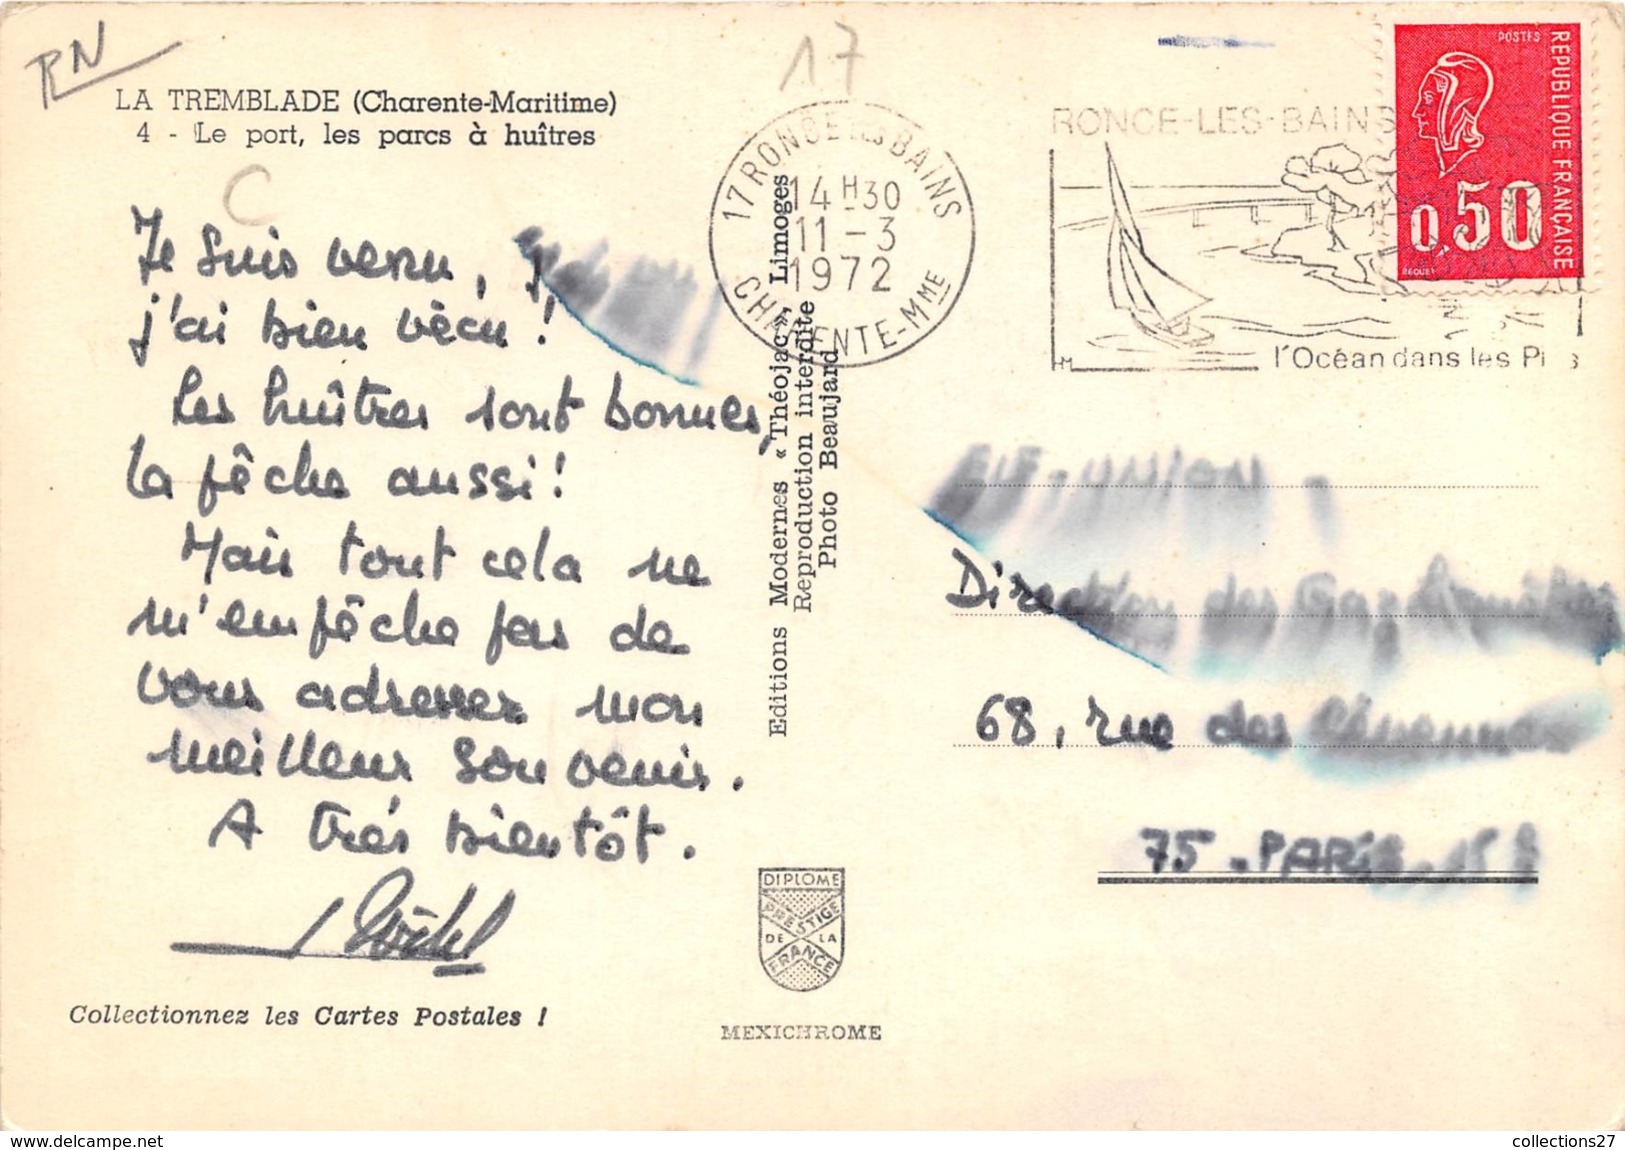 RN
17
LA TREMBLADE (Charente-Maritime)
4 - Le port, les parcs à huîtres
C
Je suis venu,
j'ai bien vécu !
Les huîtres sont bonnes,
la pêche aussi !
Mais tout cela ne
m'empêche pas de
vous adresser mon
meilleur souvenir.
A très bientôt.
Collectionnez les Cartes Postales !
Editions Modernes « Théojac », Limoges
Reproduction interdite
Photo Beaujard
DIPLOME
PRESTIGE
DE LA
FRANCE
MEXICHROME
17 RONCE LES BAINS
14 H 30
11 - 3
1972
CHARENTE-MME
RONCE-LES-BAINS
l'Océan dans les Pins
M
POSTES
REPUBLIQUE FRANÇAISE
0,50
BEQUET
UNION
Direction des
68, rue des Cévennes
75 - PARIS - 15e
collections27
www.delcampe.net